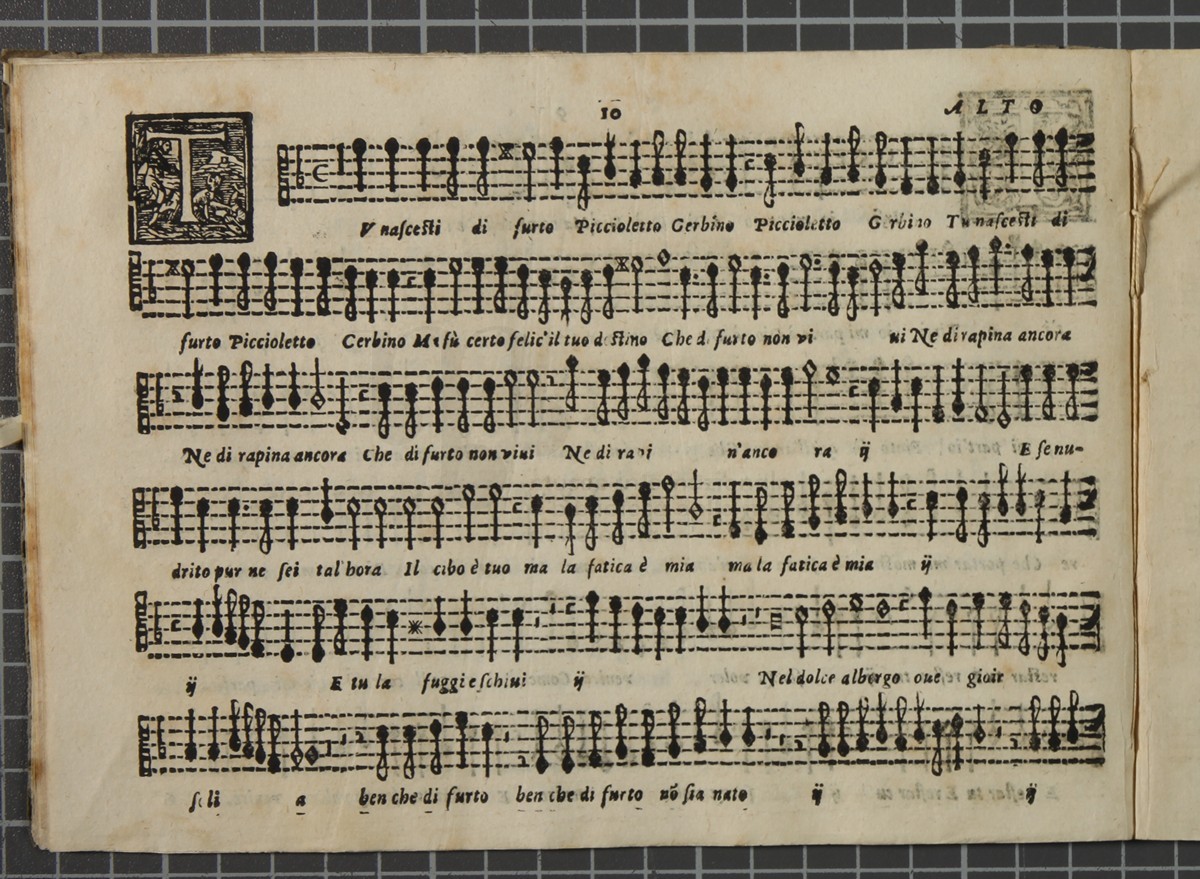 10 ALTO
TV nascesti di furto Piccioletto Cerbino Piccioletto Gerbino Tu nascesti di
furto Piccioletto Cerbino Ma fù certo felic'il tuo destino Che di furto non vi ui Ne di rapina ancora
Ne di rapina ancora Che di furto non viui Ne di rapi n'anco ra ij E se nu-
drito pur ne sei tal'hora Il cibo è tuo ma la fatica è mia ma la fatica è mia ij
ij E tu la fuggi e schiui ij Nel dolce albergo oue gioir
soli a ben che di furto ben che di furto nõ sia nato ij ij